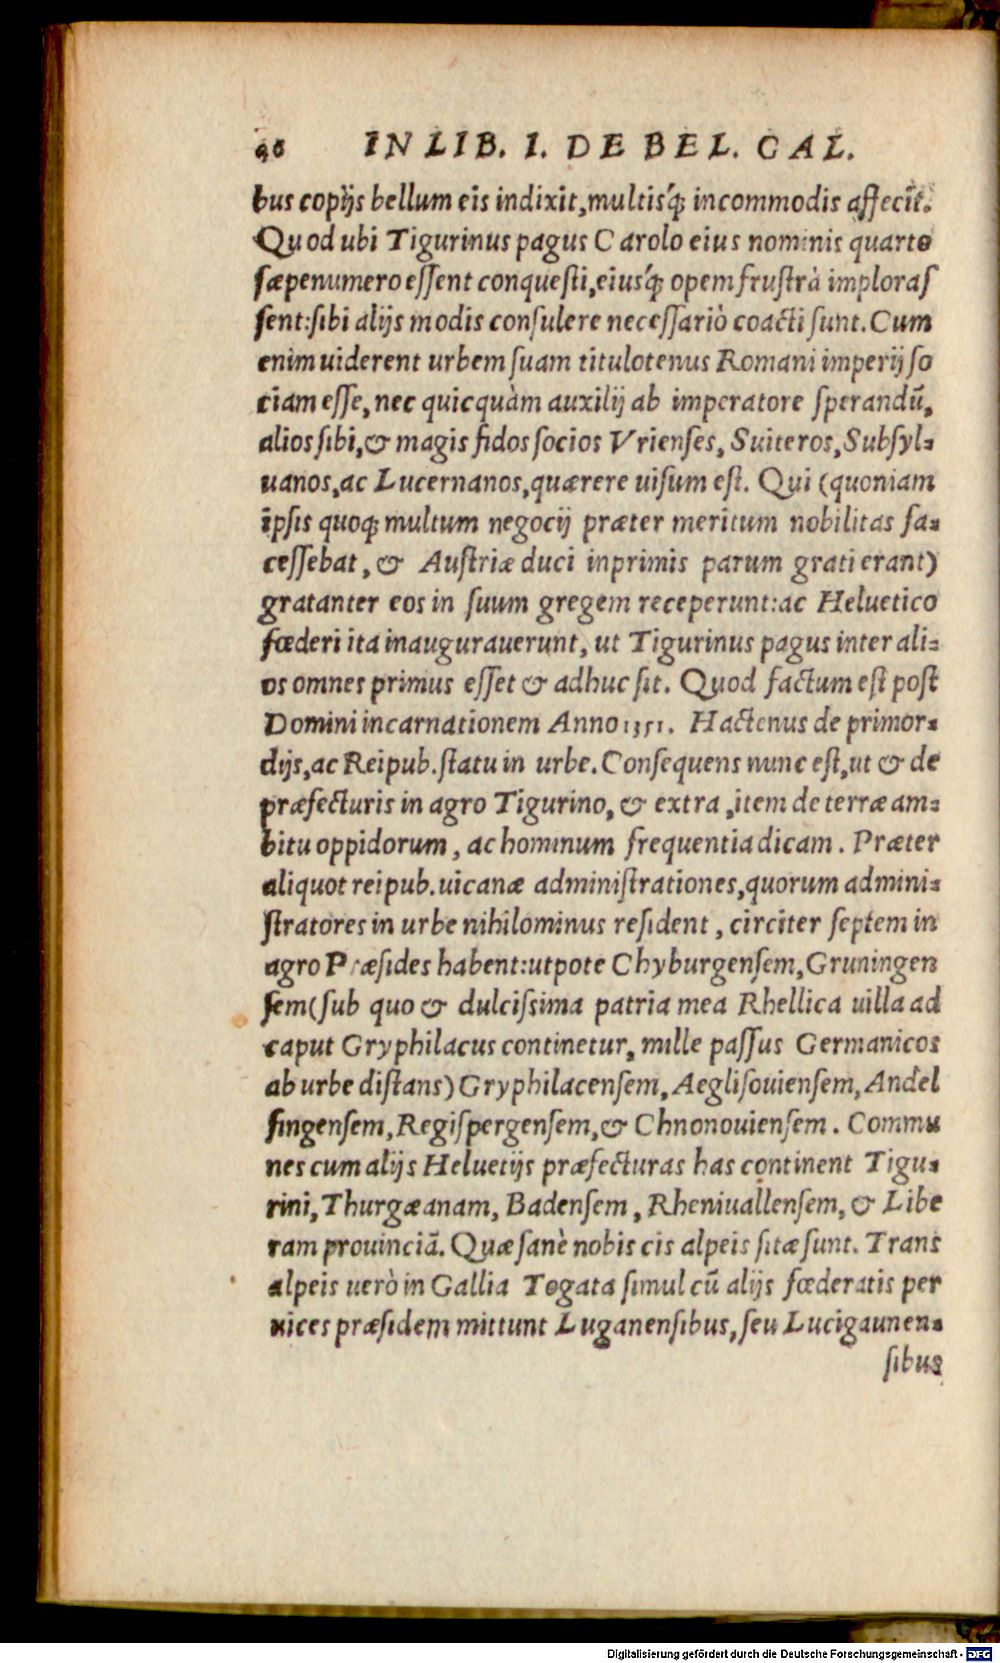 IN LIB. I. DE BEL. GAL.
bus copijs bellum eis indixit, multisq́; incommodis affecit.
Quod ubi Tigurinus pagus Carolo eius nominis quarto
sæpenumero essent conquesti, eiusq́; opem frustrà imploras
sent: sibi alijs modis consulere necessariò coacti sunt. Cum
enim uiderent urbem suam titulotenus Romani imperij so
ciam esse, nec quicquàm auxilij ab imperatore sperandū,
alios sibi, & magis fidos socios Vrienses, Suiteros, Subsyl-
uanos, ac Lucernanos, quærere uisum est. Qui (quoniam
ipsis quoq; multum negocij præter meritum nobilitas fa-
cessebat, & Austriæ duci inprimis parum grati erant)
gratanter eos in suum gregem receperunt: ac Heluetico
fœderi ita inaugurauerunt, ut Tigurinus pagus inter ali-
os omnes primus esset & adhuc sit. Quod factum est post
Domini incarnationem Anno 1351. Hactenus de primor-
dijs, ac Reipub. statu in urbe. Consequens nunc est, ut & de
præfecturis in agro Tigurino, & extra, item de terræ am-
bitu oppidorum, ac hominum frequentia dicam. Præter
aliquot reipub. uicanæ administrationes, quorum admini-
stratores in urbe nihilominus resident, circiter septem in
agro Præsides habent: utpote Chyburgensem, Gruningen
sem (sub quo & dulcissima patria mea Rhellica uilla ad
caput Gryphilacus continetur, mille passus Germanicos
ab urbe distans) Gryphilacensem, Aeglisouiensem, Andel
fingensem, Regispergensem, & Chnonouiensem. Commu
nes cum alijs Heluetijs præfecturas has continent Tigu-
rini, Thurgæanam, Badensem, Rheniuallensem, & Libe
ram prouinciā. Quæ sanè nobis cis alpeis sitæ sunt. Trans
alpeis uerò in Gallia Togata simul cū alijs fœderatis per
uices præsidem mittunt Luganensibus, seu Lucigaunen-
sibus
Digitalisierung gefördert durch die Deutsche Forschungsgemeinschaft - DFG